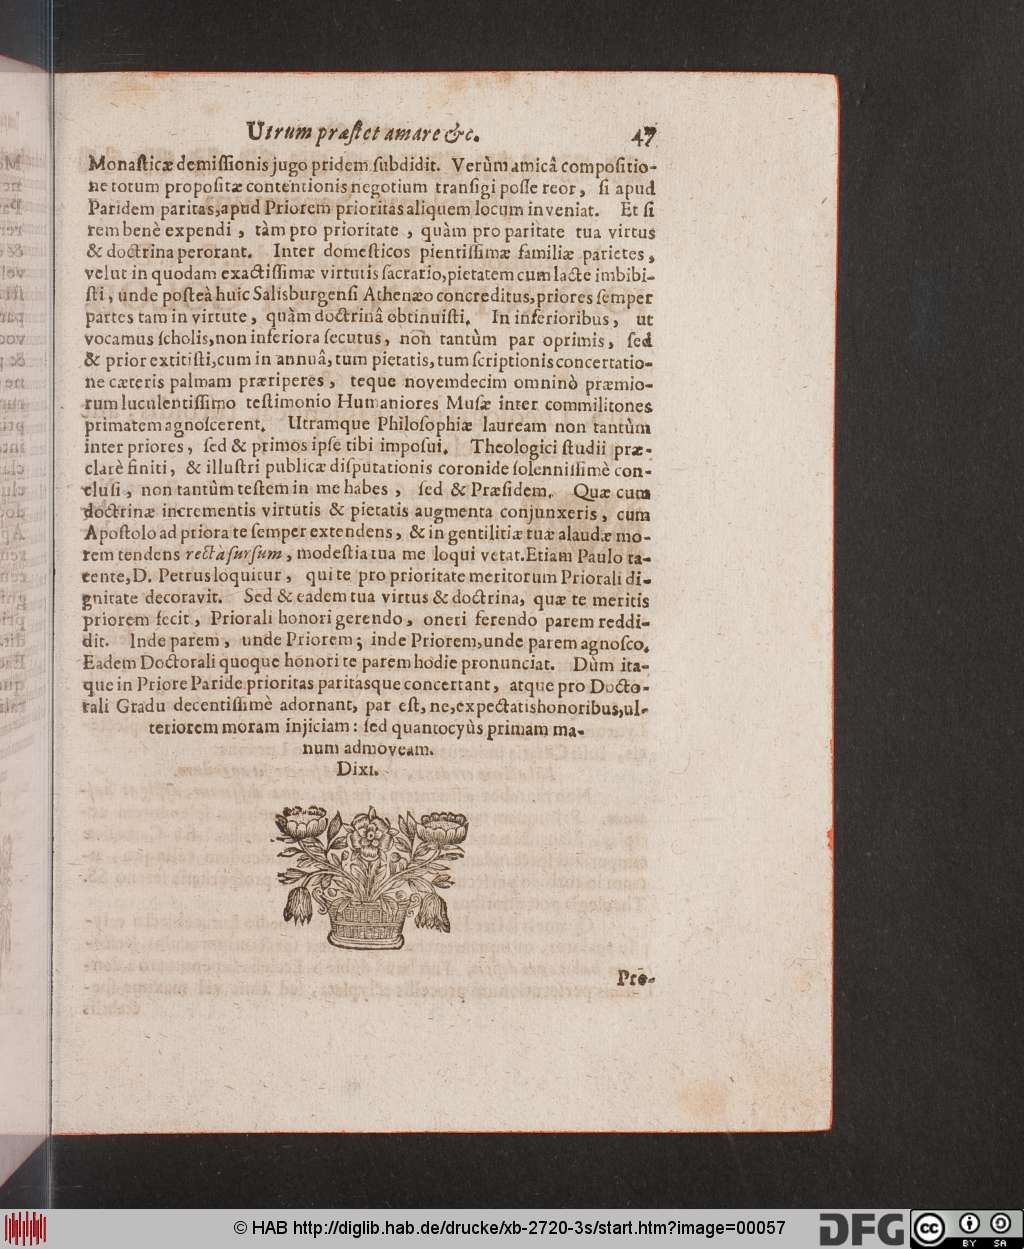 Utrum præſtet amare &c. 47
Monaſticæ demiſſionis jugo pridem ſubdidit. Verùm amicâ compoſitio-
ne totum propoſitæ contentionis negotium tranſigi poſſe reor, ſi apud
Paridem paritas, apud Priorem prioritas aliquem locum inveniat. Et ſi
rem benè expendi, tàm pro prioritate, quàm pro paritate tua virtus
& doctrina perorant. Inter domeſticos pientiſſimæ familiæ parietes,
velut in quodam exactiſſimæ virtutis ſacrario, pietatem cum lacte imbibi-
ſti, unde poſteà huic Salisburgenſi Athenæo concreditus, priores ſemper
partes tam in virtute, quàm doctrinâ obtinuiſti. In inferioribus, ut
vocamus ſcholis, non inferiora ſecutus, non tantùm par oprimis, ſed
& prior extitiſti, cum in annuâ, tum pietatis, tum ſcriptionis concertatio-
ne cæteris palmam præriperes, teque novemdecim omninò præmio-
rum luculentiſſimo teſtimonio Humaniores Muſæ inter commilitones
primatem agnoſcerent. Utramque Philoſophiæ lauream non tantùm
inter priores, ſed & primos ipſe tibi impoſui. Theologici ſtudii præ-
clarè finiti, & illuſtri publicæ diſputationis coronide ſolenniſſimè con-
cluſi, non tantùm teſtem in me habes, ſed & Præſidem. Quæ cum
doctrinæ incrementis virtutis & pietatis augmenta conjunxeris, cum
Apoſtolo ad priora te ſemper extendens, & in gentilitiæ tuæ alaudæ mo-
rem tendens recta ſurſum, modeſtia tua me loqui vetat. Etiam Paulo ta-
cente, D. Petrus loquitur, qui te pro prioritate meritorum Priorali di-
gnitate decoravit. Sed & eadem tua virtus & doctrina, quæ te meritis
priorem fecit, Priorali honori gerendo, oneri ferendo parem reddi-
dit. Inde parem, unde Priorem; inde Priorem, unde parem agnoſco.
Eadem Doctorali quoque honori te parem hodie pronunciat. Dùm ita-
que in Priore Paride prioritas paritasque concertant, atque pro Docto-
rali Gradu decentiſſimè adornant, par eſt, ne, expectatis honoribus, ul-
teriorem moram injiciam: ſed quantocyùs primam ma-
num admoveam.
Dixi.
Pro-
© HAB http://diglib.hab.de/drucke/xb-2720-3s/start.htm?image=00057
DFG
cc
BY SA